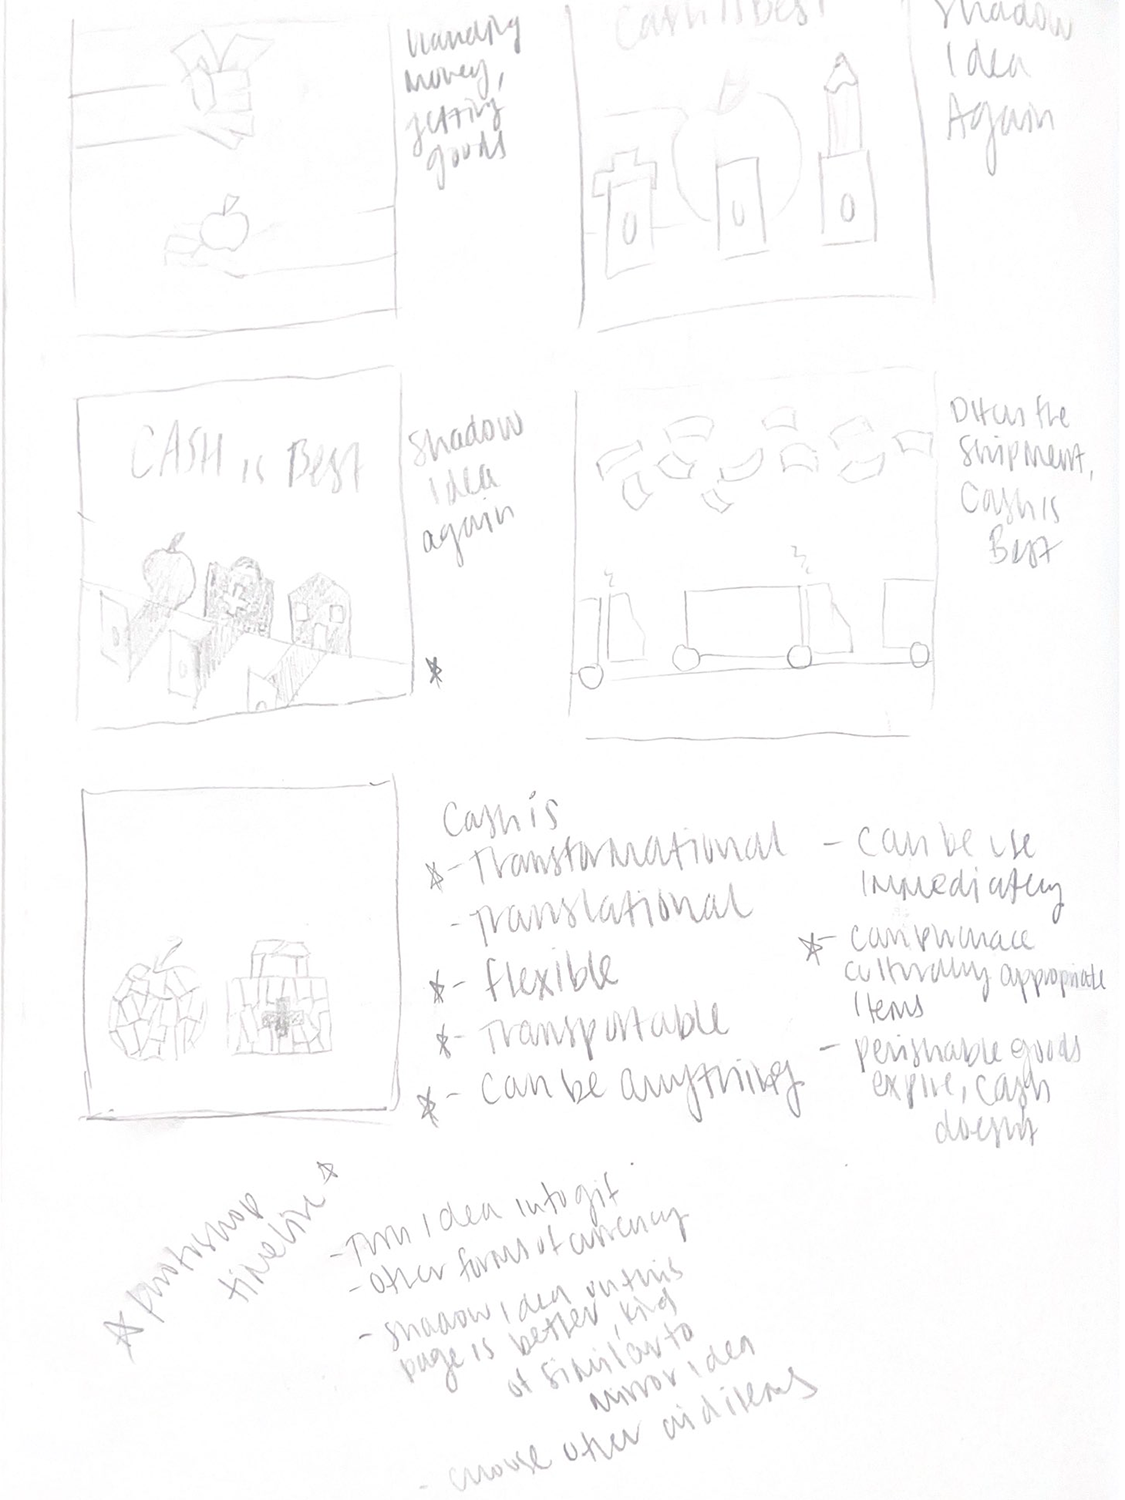 Handing
money,
getting
goods
Cash is Best
Shadow
Idea
Again
CASH is Best
Shadow
idea
again
Ditch the
Shipment,
Cash is
Best
Cash is
- Transformational
- Translational
- flexible
- Transportable
- can be anything
- can be use
immediately
- can purchace
culturally appropriate
Items
- perishable goods
expire, cash
doesn't
photoshop
timeline
- Turn idea into gif
- other forms of currency
- shadow idea on this
page is better, kind
of similar to
mirror idea
- choose other aid items